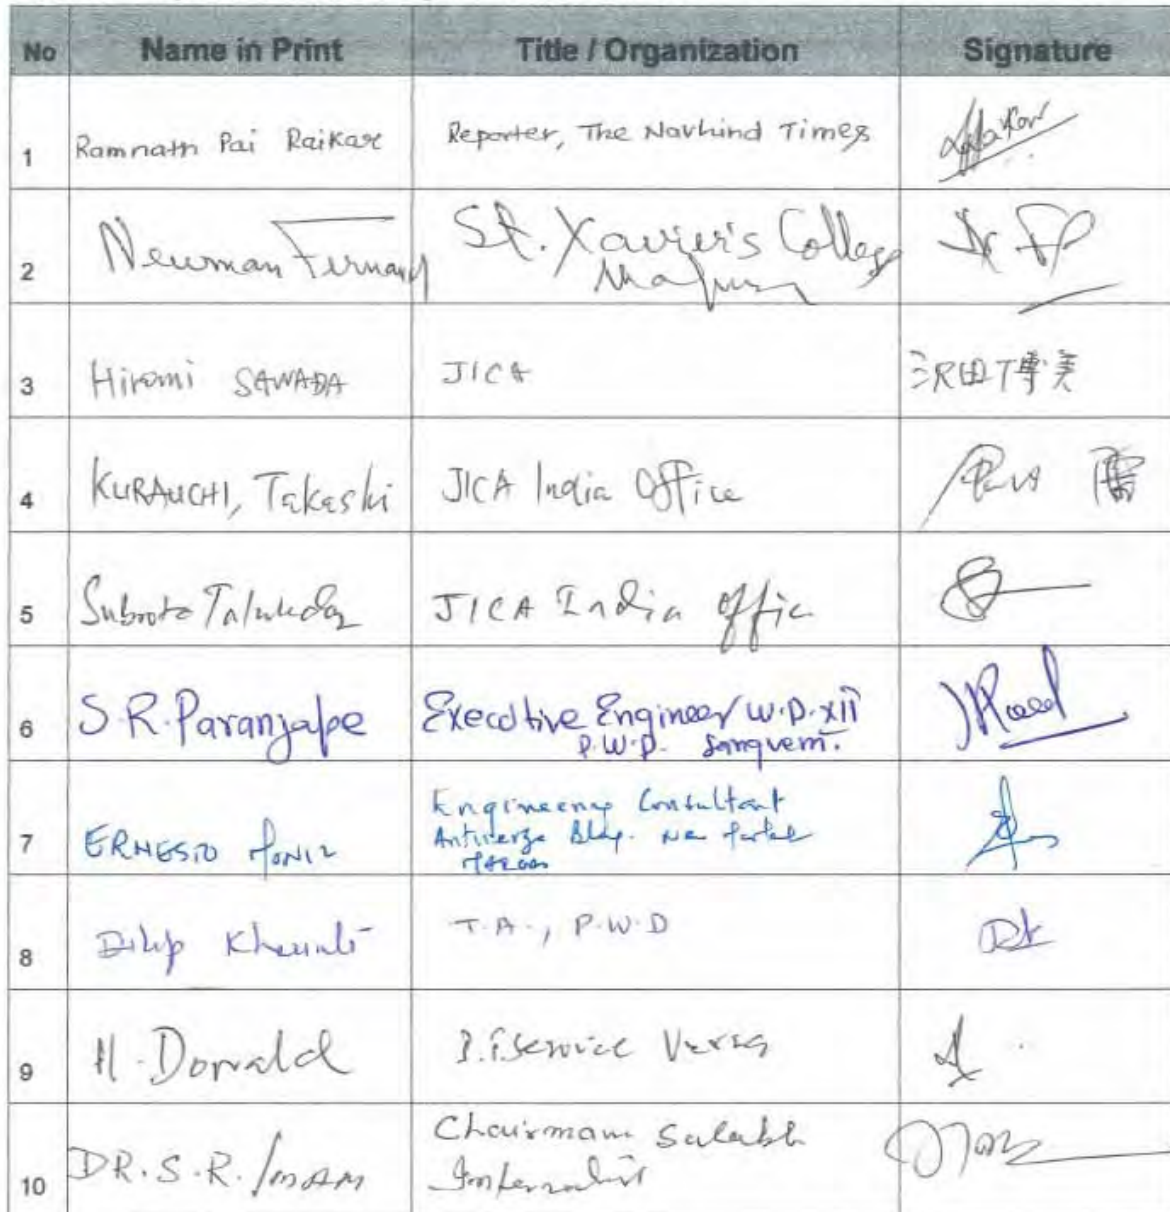 No Name in Print Title / Organization Signature
1 Ramnath Pai Raikar Reporter, The Navhind Times
2 Newman Fernand St. Xavier's College
Mapusa
3 Hiromi SAWADA JICA 沢田博美
4 KURAUCHI, Takashi JICA India Office
5 Subroto Talukdar JICA India Offic
6 S.R. Paranjape Executive Engineer W.D. XII
P.W.D. Sanguem.
7 ERNESTO MONIZ Engineering Consultant
Bldg.
8 Dilip T.A., P.W.D
9 H. Donald Service
10 DR. S. R. IMAM Chairman Sulabh